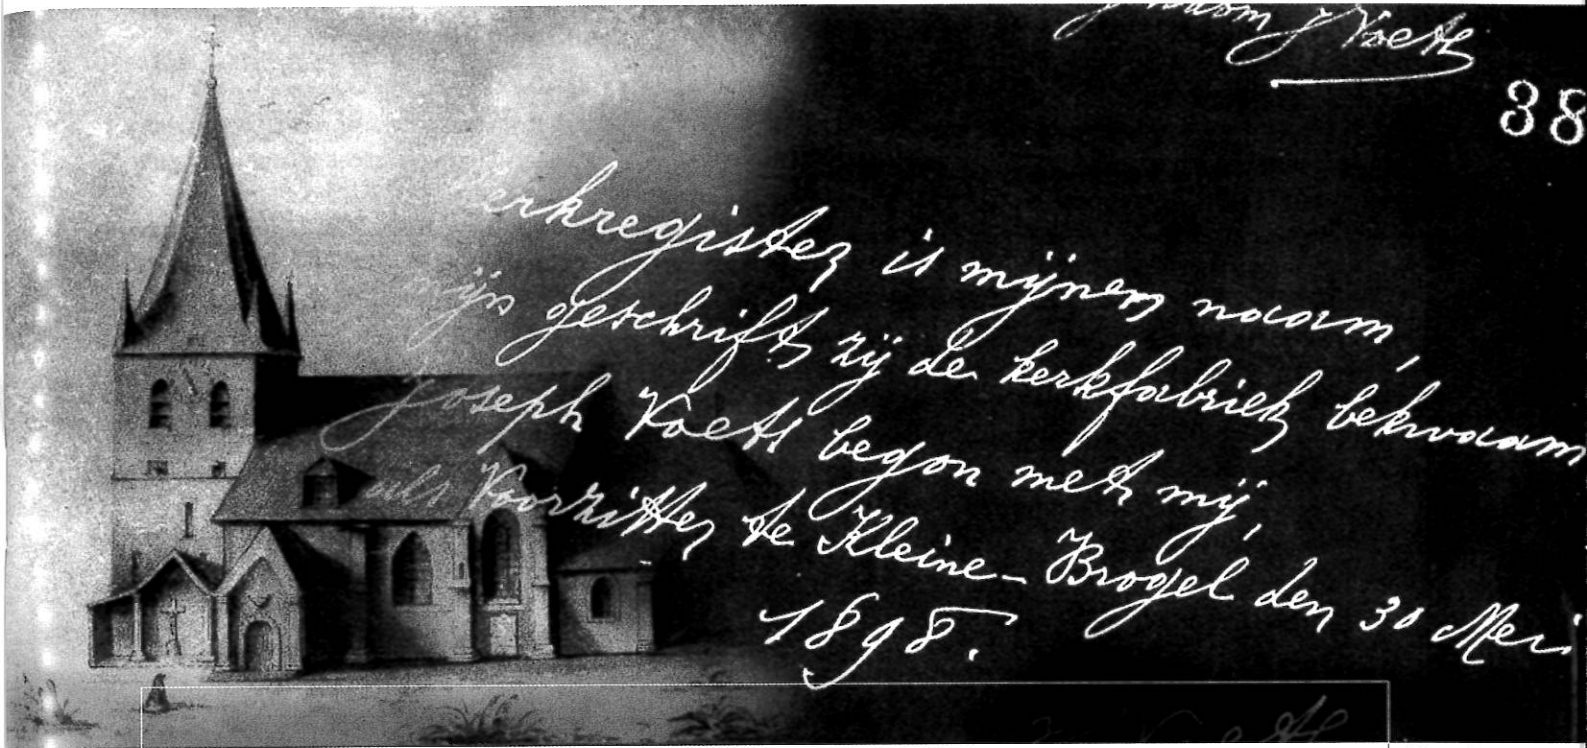 J Voets
38
Kerkregister is mijnen naam,
mijn geschrift zij de kerkfabriek bekwaam
Joseph Voets begon met mij,
als Voorzitter te Kleine-Brogel den 30 Mei
1898.